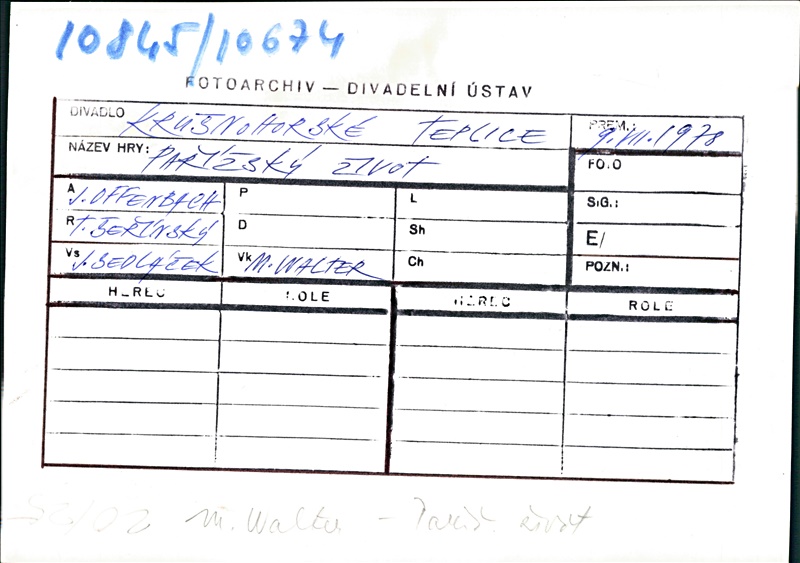 10845/10674
FOTOARCHIV — DIVADELNÍ ÚSTAV
DIVADLO KRUŠNOHORSKÉ TEPLICE PREM.: 9.VII.1978
NÁZEV HRY: PAŘÍŽSKÝ ŽIVOT FO.O
A J. OFFENBACH P L SIG.:
R T. BEŘÍNSKÝ D Sh E/
Vs J. SEDLÁČEK Vk M. WALTER Ch POZN.:
HEREC ROLE HEREC ROLE
M. Walter - Paříž. život